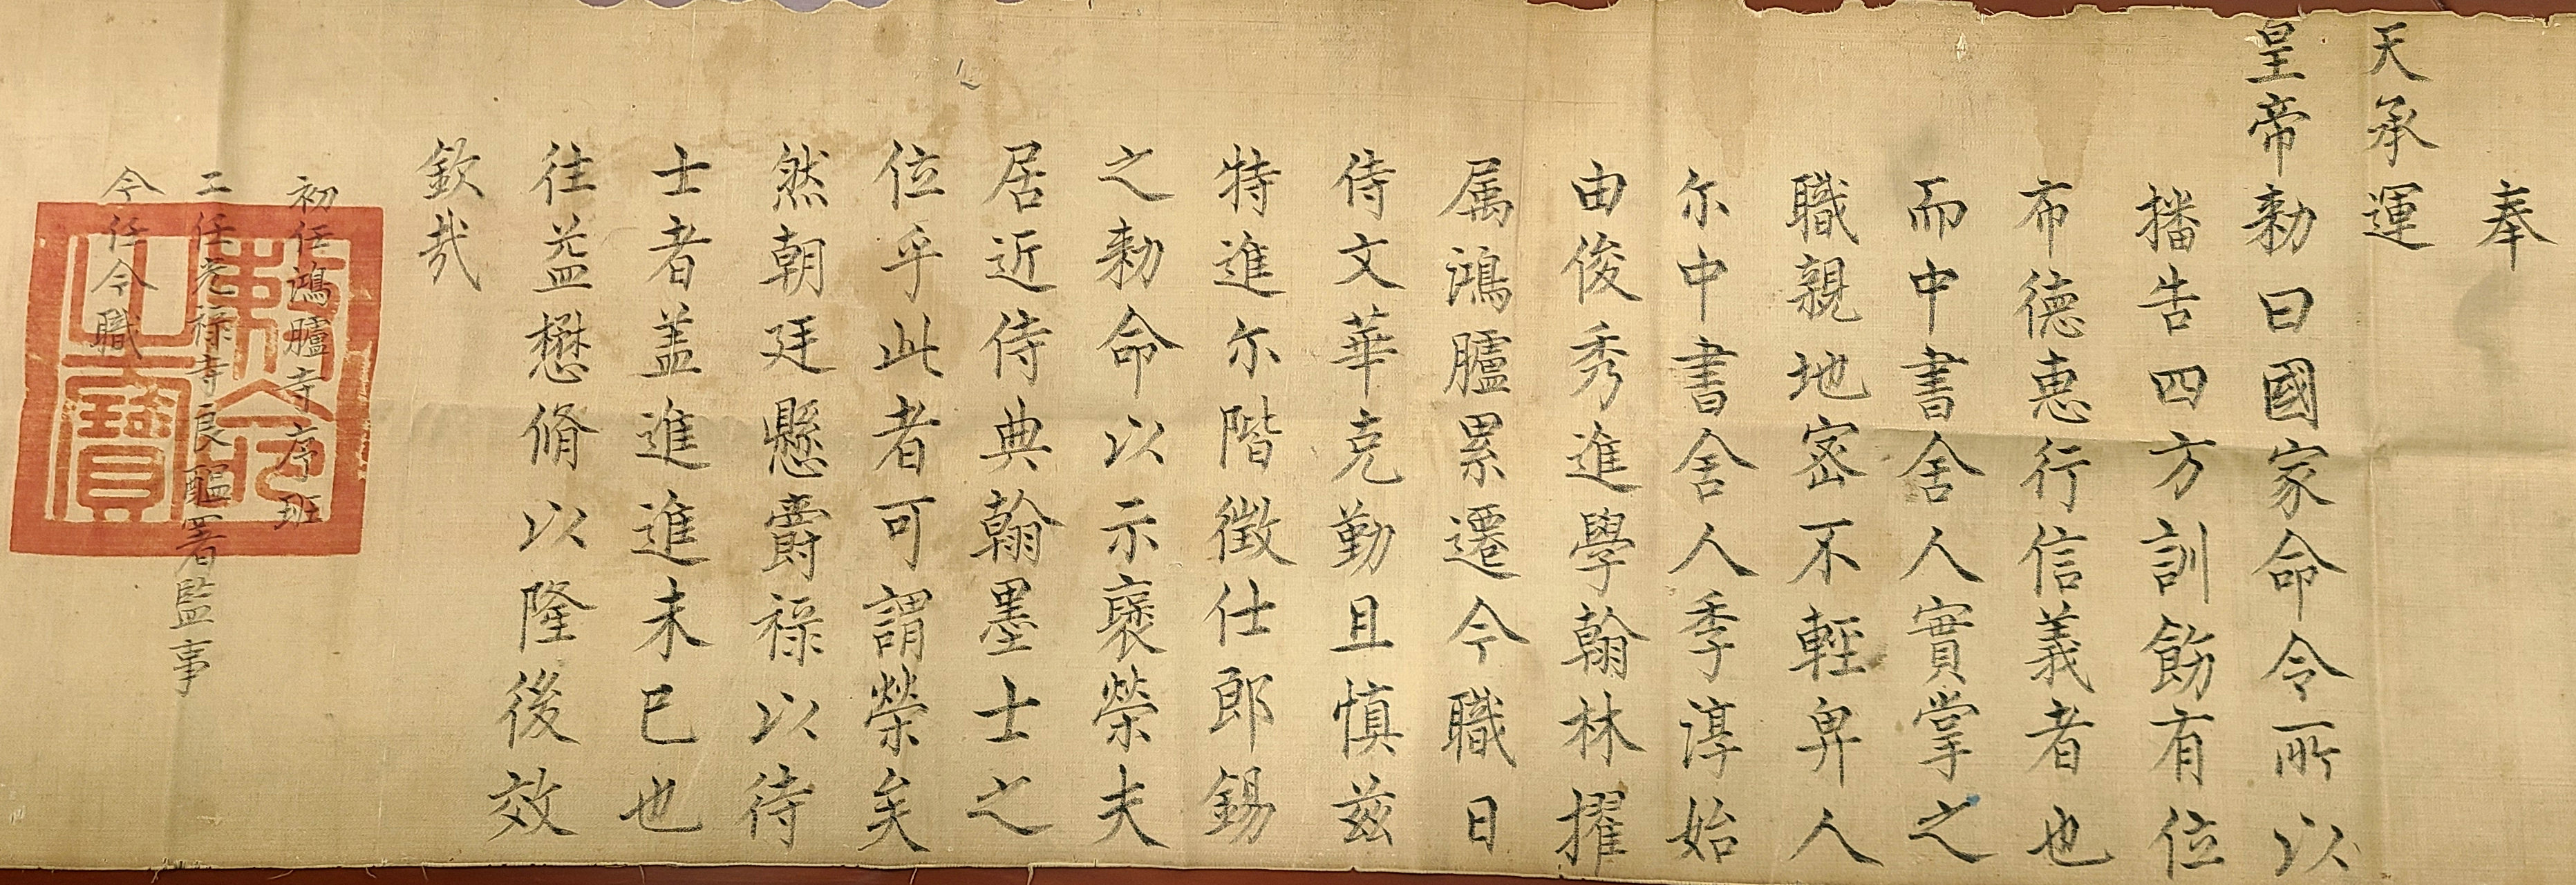 奉
天承運
皇帝勑曰國家命令所以
播告四方訓飭有位
布德惠行信義者也
而中書舍人實掌之
職親地密不輕畀人
尔中書舍人季淳始
由俊秀進學翰林擢
属鴻臚累遷今職日
侍文華克勤且慎茲
特進尔階徵仕郎錫
之勑命以示褒榮夫
居近侍典翰墨士之
位乎此者可謂榮矣
然朝廷懸爵禄以待
士者盖進進未已也
往益懋脩以隆後效
欽哉
初任鴻臚寺序班
二任光禄寺良醞署監事
今任今職
敕命之寶